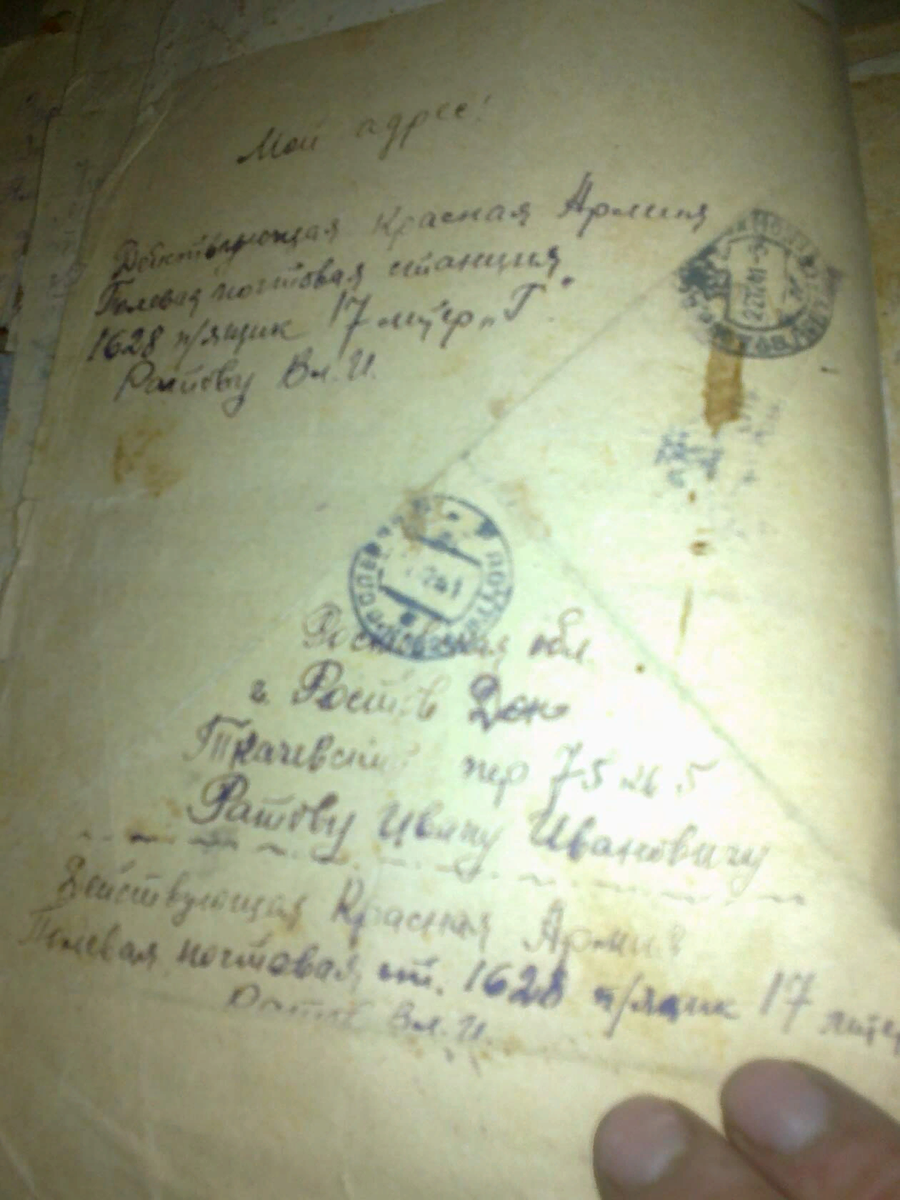 Мой адрес:
Действующая Красная Армия
Полевая почтовая станция
1628 п/ящик 17 литер „Г"
Ратову Вл. И.
Ростовская обл.
г. Ростов Дон
Ткачевский пер 75
Ратову Ивану Ивановичу
Действующая Красная Армия
Полевая почтовая ст. 1628 п/ящик 17 литер
Вл. И.